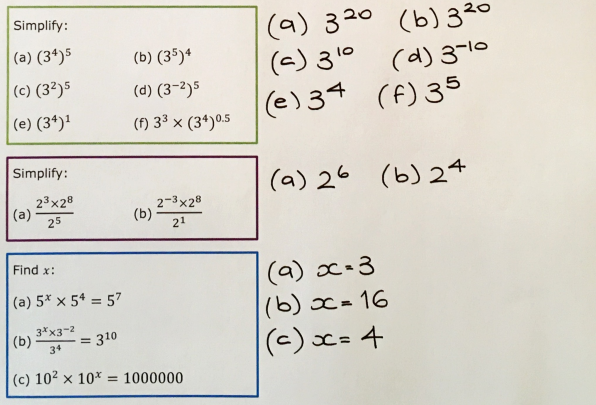 Simplify:
(a) (3⁴)⁵ (b) (3⁵)⁴
(c) (3²)⁵ (d) (3⁻²)⁵
(e) (3⁴)¹ (f) 3³ × (3⁴)⁰·⁵
(a) 3²⁰ (b) 3²⁰
(c) 3¹⁰ (d) 3⁻¹⁰
(e) 3⁴ (f) 3⁵
Simplify:
(a) 2³×2⁸ / 2⁵ (b) 2⁻³×2⁸ / 2¹
(a) 2⁶ (b) 2⁴
Find x:
(a) 5ˣ × 5⁴ = 5⁷
(b) 3ˣ×3⁻² / 3⁴ = 3¹⁰
(c) 10² × 10ˣ = 1000000
(a) x = 3
(b) x = 16
(c) x = 4